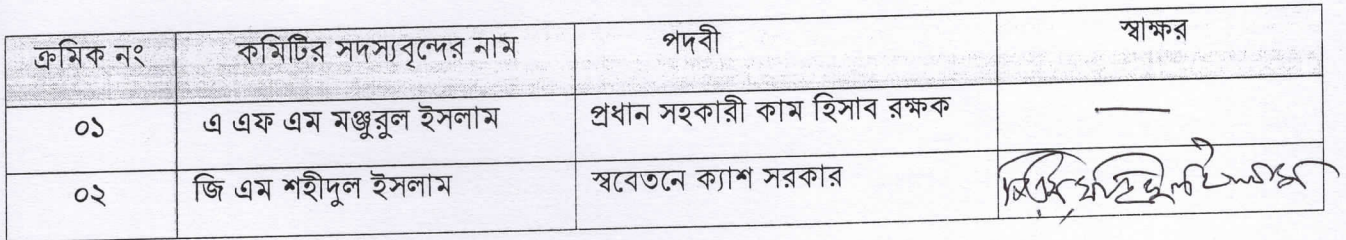 ক্রমিক নং কমিটির সদস্যবৃন্দের নাম পদবী স্বাক্ষর
০১ এ এফ এম মঞ্জুরুল ইসলাম প্রধান সহকারী কাম হিসাব রক্ষক —
০২ জি এম শহীদুল ইসলাম স্ববেতনে ক্যাশ সরকার